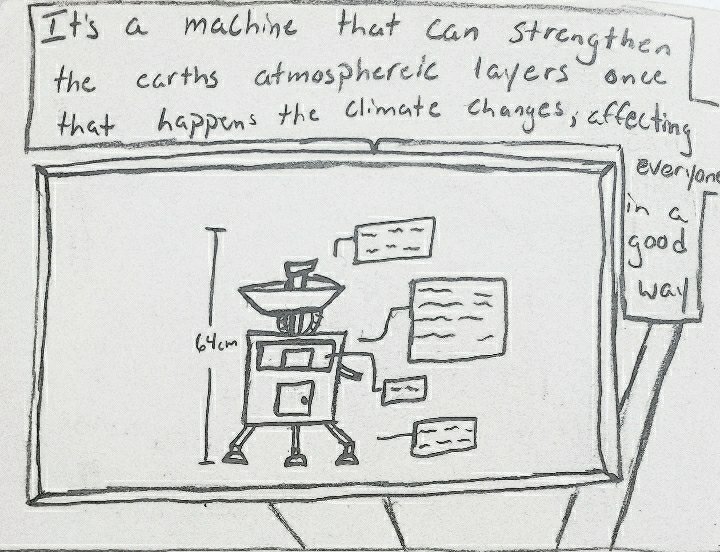 It's a machine that can strengthen
the earths atmosphereic layers once
that happens the climate changes, affecting
everyone
in a
good
way
64cm